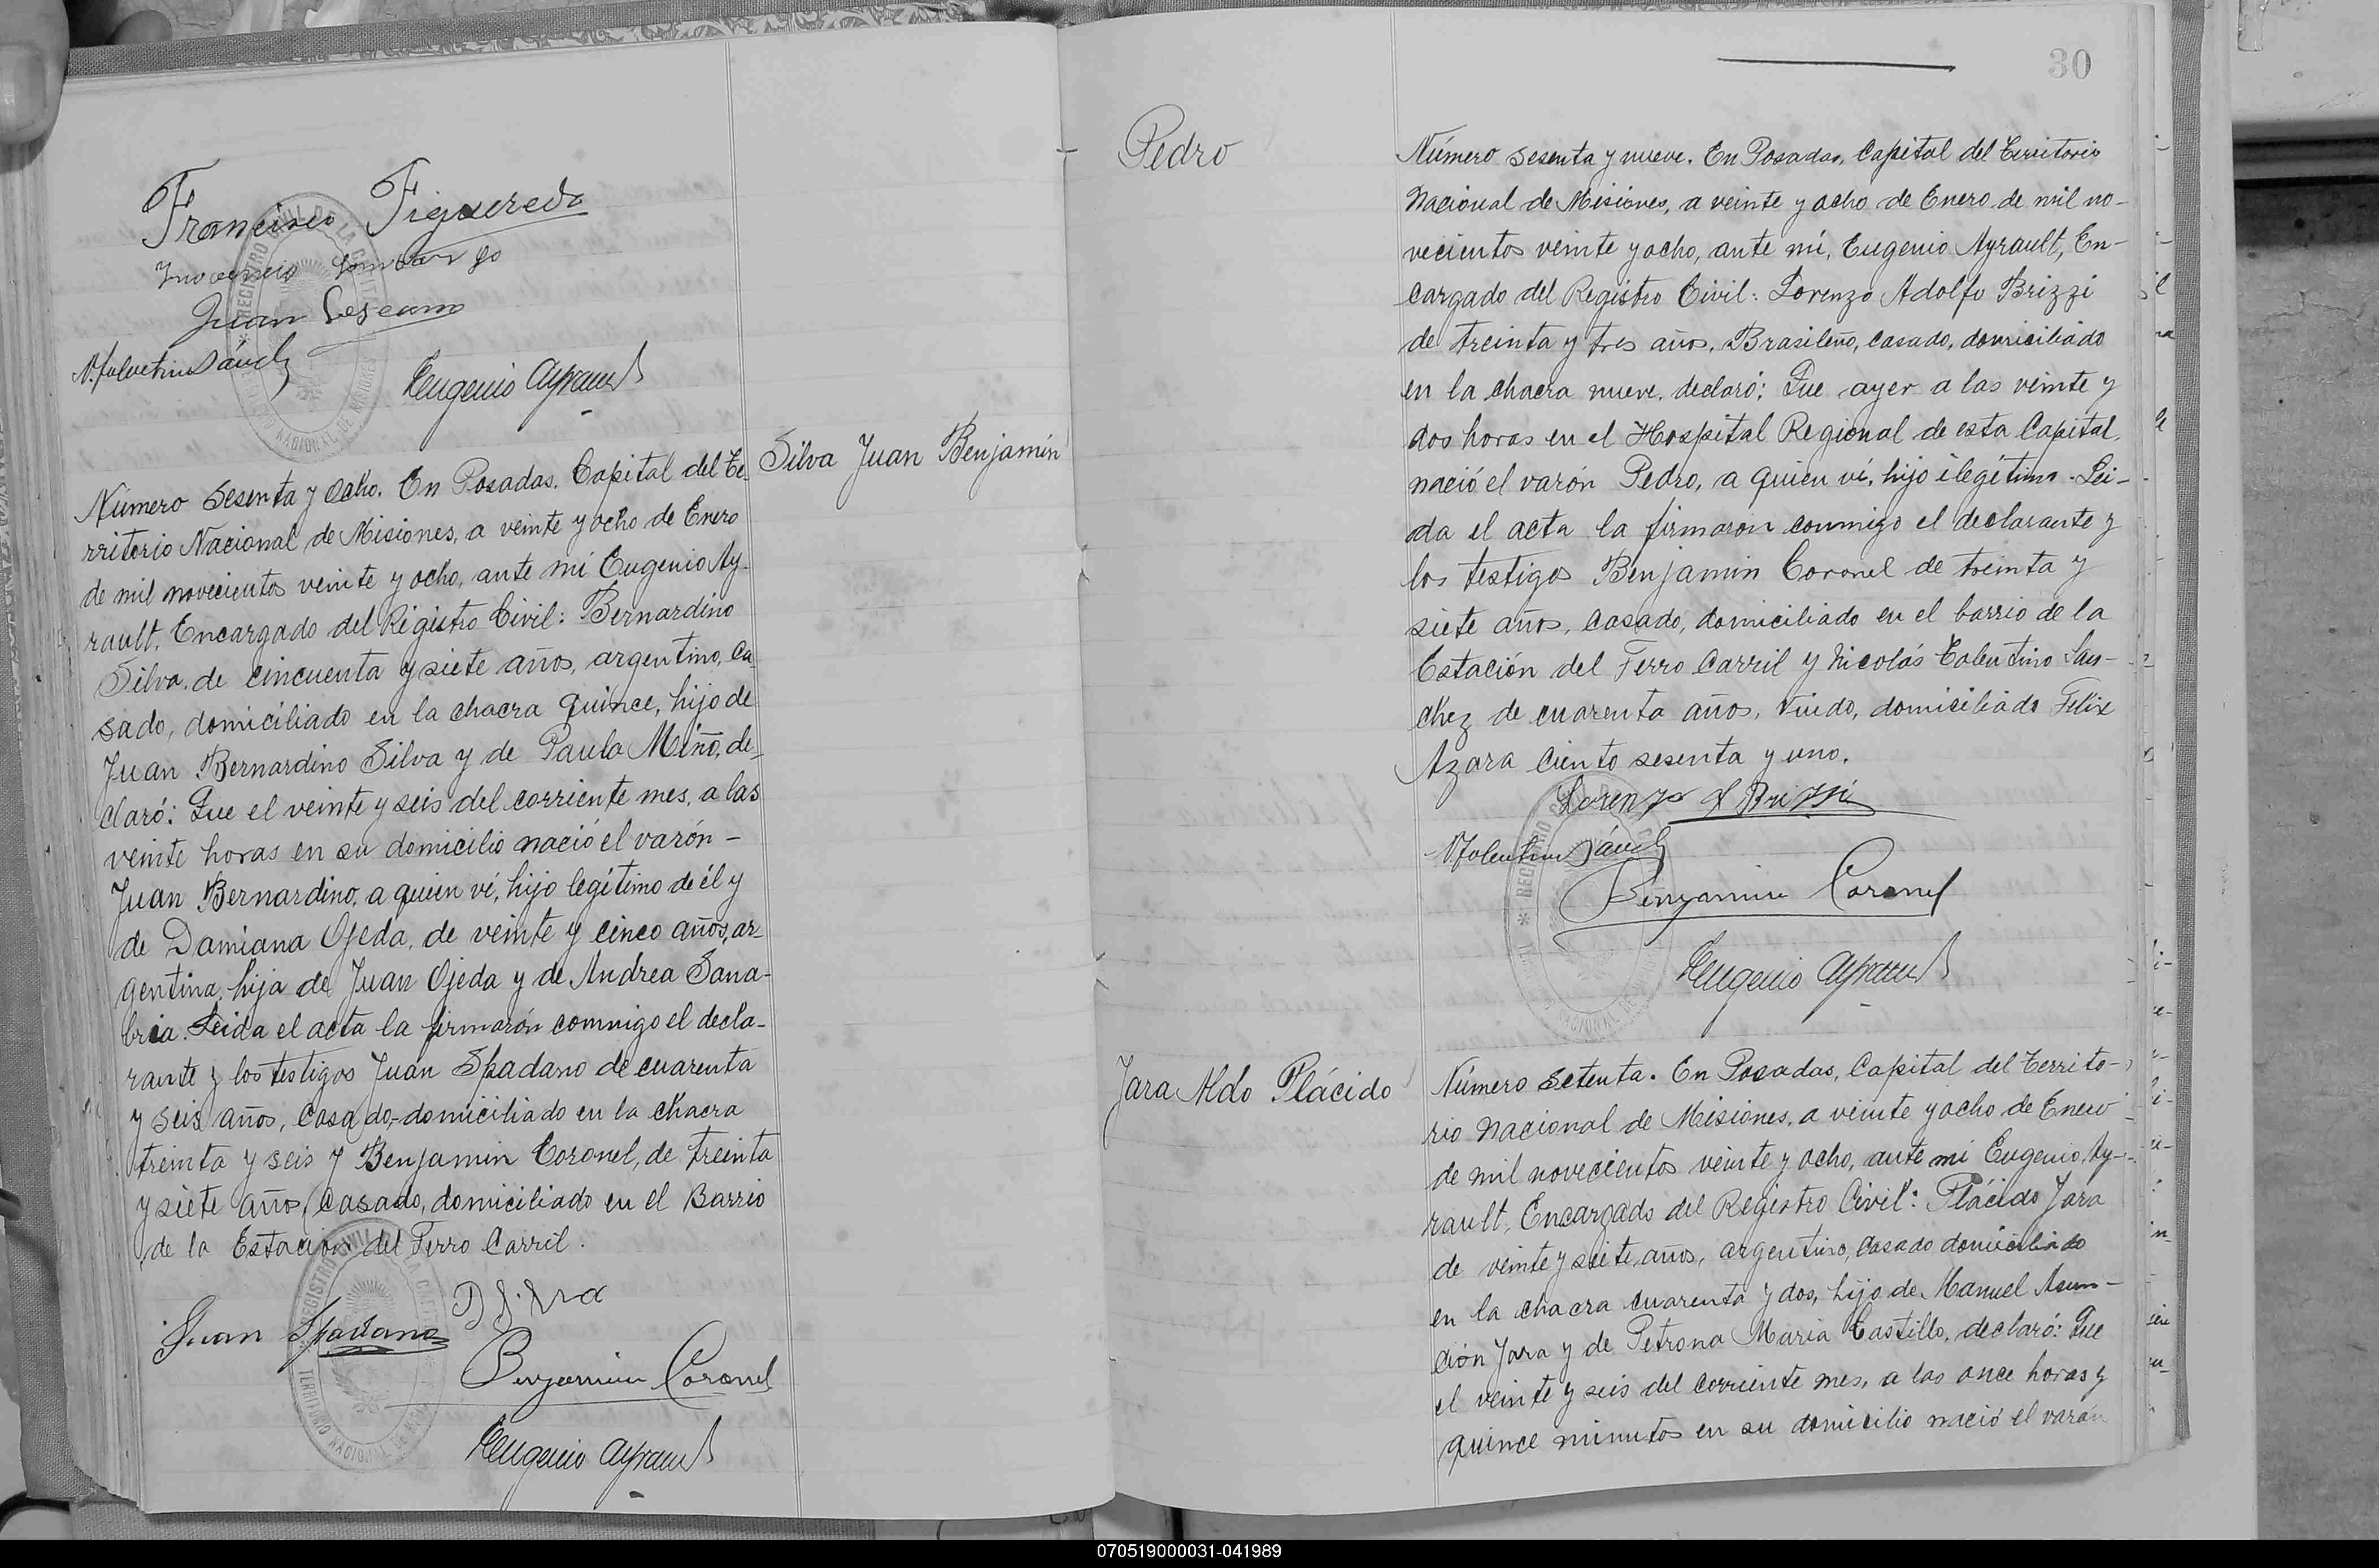 Francisco Figueredo
Juan Lescano
N. Tolentino Sánchez
Eugenio Ayrault
Silva Juan Benjamín
Número sesenta y ocho. En Posadas, Capital del Te-
rritorio Nacional de Misiones, a veinte y ocho de Enero
de mil novecientos veinte y ocho, ante mi Eugenio Ay-
rault, Encargado del Registro Civil: Bernardino
Silva, de cincuenta y siete años, argentino, ca-
sado, domiciliado en la chacra quince, hijo de
Juan Bernardino Silva y de Paula Miño, de-
claró: Que el veinte y seis del corriente mes, a las
veinte horas en su domicilio nació el varón -
Juan Bernardino, a quien ví, hijo legítimo de él y
de Damiana Ojeda, de veinte y cinco años, ar-
gentina, hija de Juan Ojeda y de Andrea Sana-
bria. Leida el acta la firmarón conmigo el decla-
rante y los testigos Juan Spadano de cuarenta
y seis años, casado, domiciliado en la chacra
treinta y seis y Benjamin Coronel, de treinta
y siete años, casado, domiciliado en el Barrio
de la Estación del Ferro Carril.
B Silva
Juan Spadano
Benjamin Coronel
Eugenio Ayrault
REGISTRO CIVIL DE LA CAPITAL
TERRITORIO NACIONAL DE MISIONES
30
Pedro
Número sesenta y nueve. En Posadas, Capital del Territorio
Nacional de Misiones, a veinte y ocho de Enero de mil no-
vecientos veinte y ocho, ante mí, Eugenio Ayrault, En-
cargado del Registro Civil: Lorenzo Adolfo Brizzi
de treinta y tres años, Brasileño, casado, domiciliado
en la chacra nueve, declaró: Que ayer a las veinte y
dos horas en el Hospital Regional de esta Capital,
nació el varón Pedro, a quien ví, hijo ilegítimo. Lei-
da el acta la firmaron conmigo el declarante y
los testigos Benjamin Coronel de treinta y
siete años, casado, domiciliado en el barrio de la
Estación del Ferro Carril y Nicolás Tolentino San-
chez de cuarenta años, viudo, domiciliado Felix
Azara ciento sesenta y uno.
Lorenzo A Brizzi
N. Tolentino Sánchez
Benjamin Coronel
Eugenio Ayrault
Jara Aldo Plácido
Número setenta. En Posadas, Capital del Territo-
rio Nacional de Misiones, a veinte y ocho de Enero
de mil novecientos veinte y ocho, ante mi Eugenio Ay-
rault, Encargado del Registro Civil: Plácido Jara
de veinte y siete años, argentino, casado domiciliado
en la chacra cuarenta y dos, hijo de Manuel Asun-
ción Jara y de Petrona Maria Castillo, declaró: Que
el veinte y seis del corriente mes, a las once horas y
quince minutos en su domicilio nació el varón
070519000031-041989